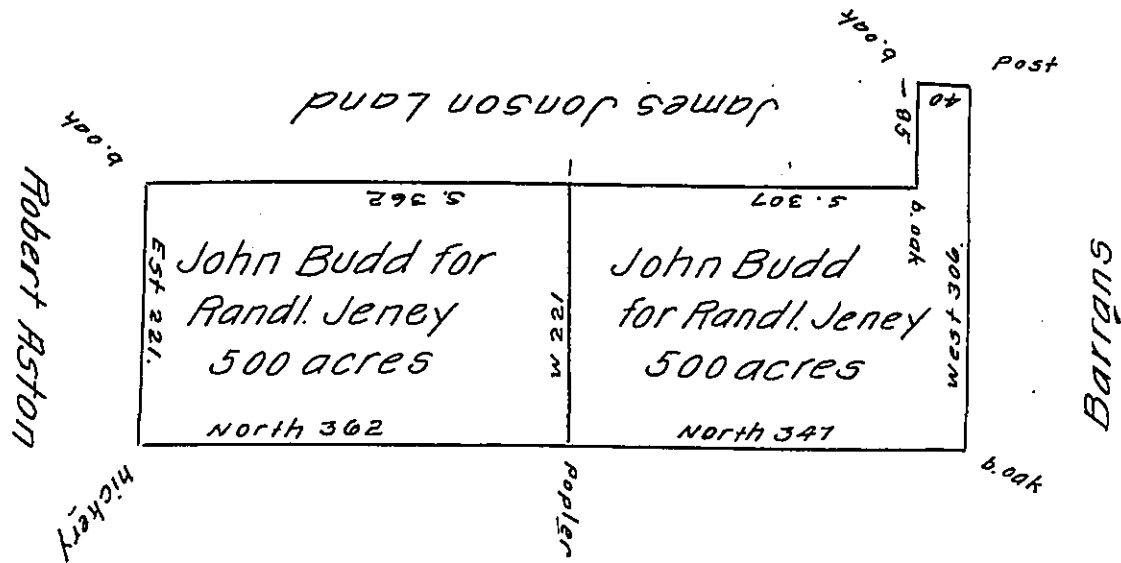 b.oak
Post
40
James Jonson Land
- 85
b.oak
Robert Aston
S. 362
S. 307
b.oak
Est 221.
John Budd for
Randl. Jeney
500 acres
W 221
John Budd
for Randl. Jeney
500 acres
West 306.
Barrans
North 362
North 347
hickery
Popler
b.oak